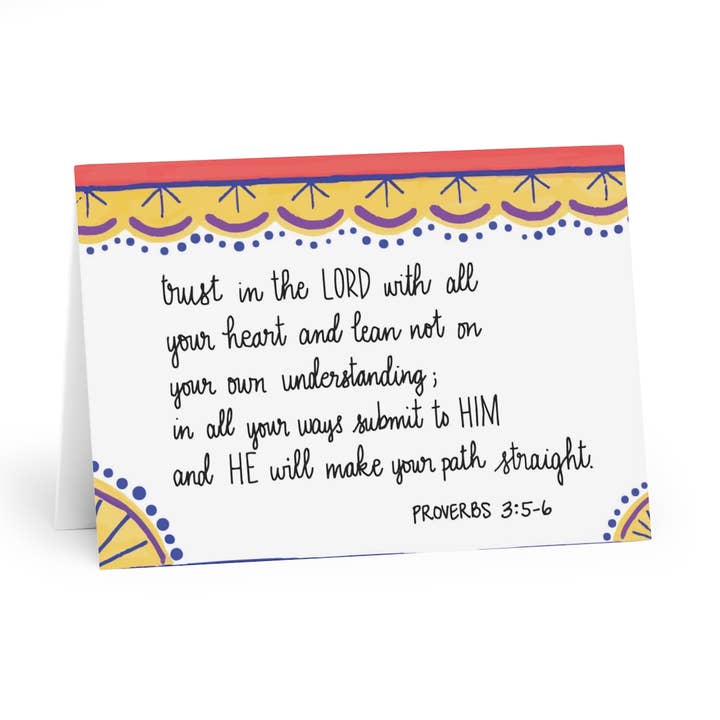 trust in the LORD with all
your heart and lean not on
your own understanding;
in all your ways submit to HIM
and HE will make your path straight.
PROVERBS 3:5-6